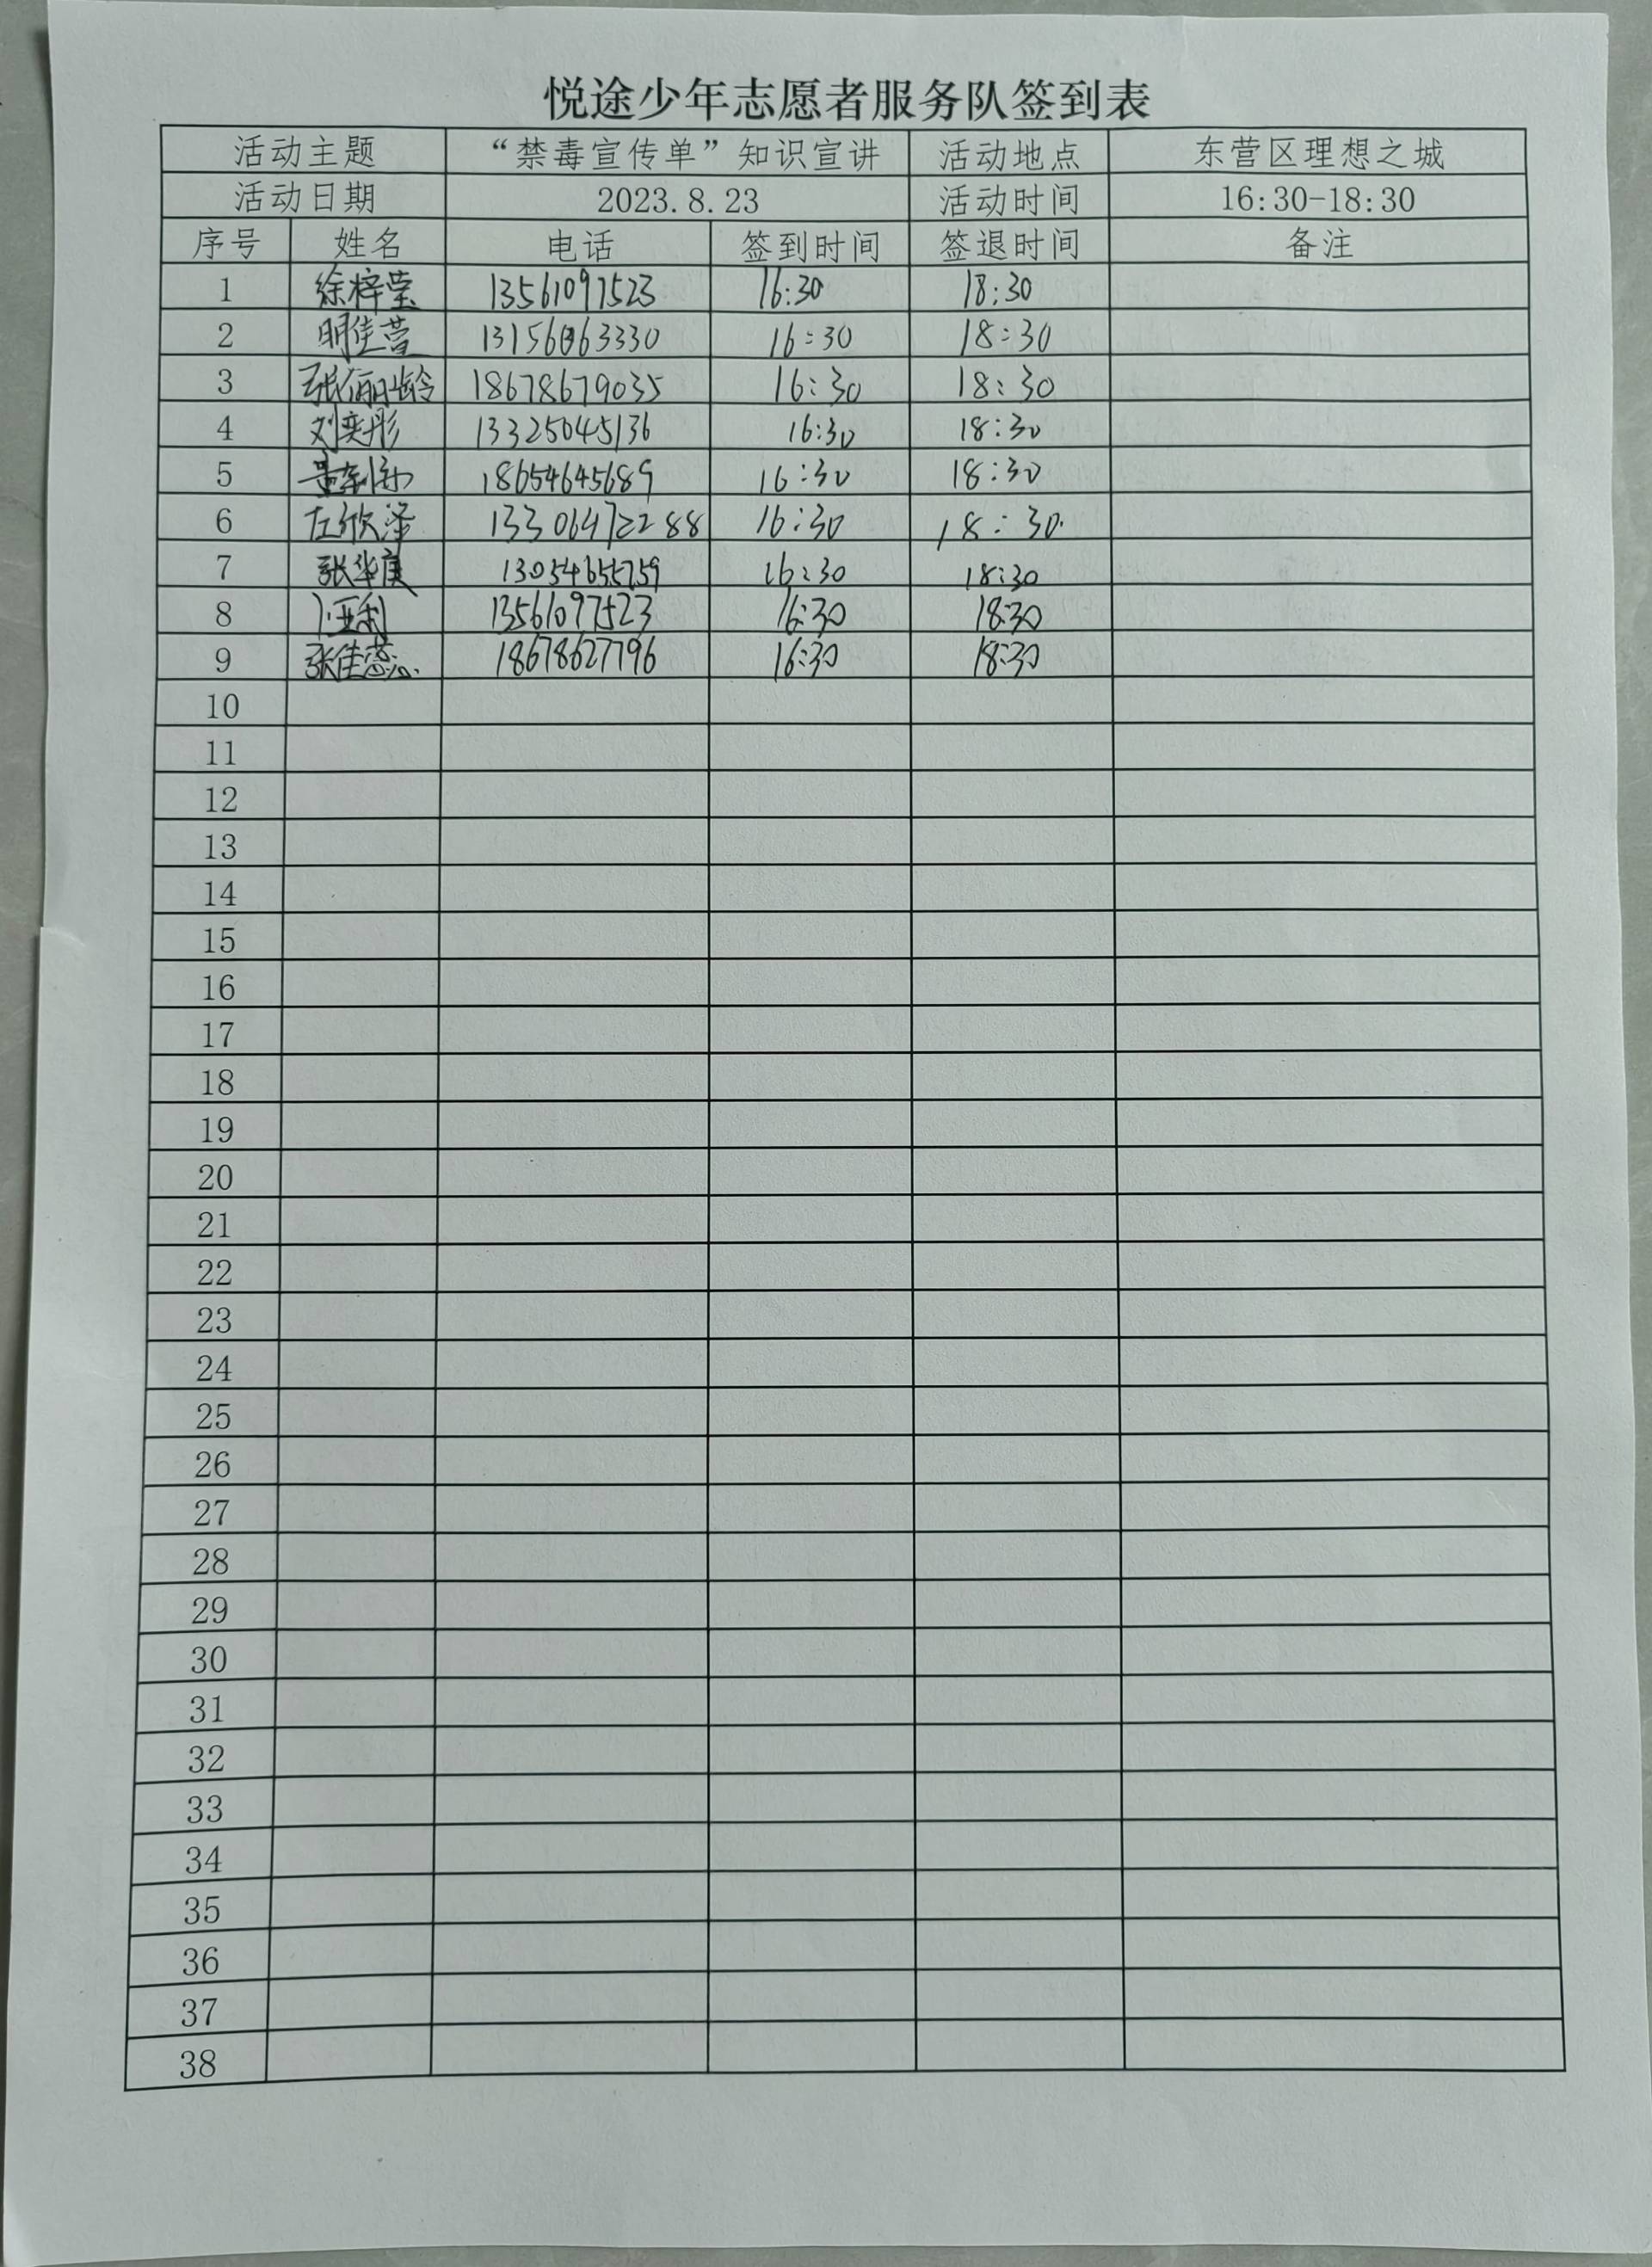 悦途少年志愿者服务队签到表
活动主题 “禁毒宣传单”知识宣讲 活动地点 东营区理想之城
活动日期 2023.8.23 活动时间 16:30-18:30
序号 姓名 电话 签到时间 签退时间 备注
1 徐梓莹 13561097523 16:30 18:30
2 明佳萱 13156063330 16:30 18:30
3 张俪龄 18678679035 16:30 18:30
4 刘奕彤 13325045136 16:30 18:30
5 18654645689 16:30 18:30
6 左欣泽 13306472288 16:30 18:30
7 张华 16:30 18:30
8 亚利 13561097523 16:30 18:30
9 张佳蕊 18678627796 16:30 18:30
10
11
12
13
14
15
16
17
18
19
20
21
22
23
24
25
26
27
28
29
30
31
32
33
34
35
36
37
38